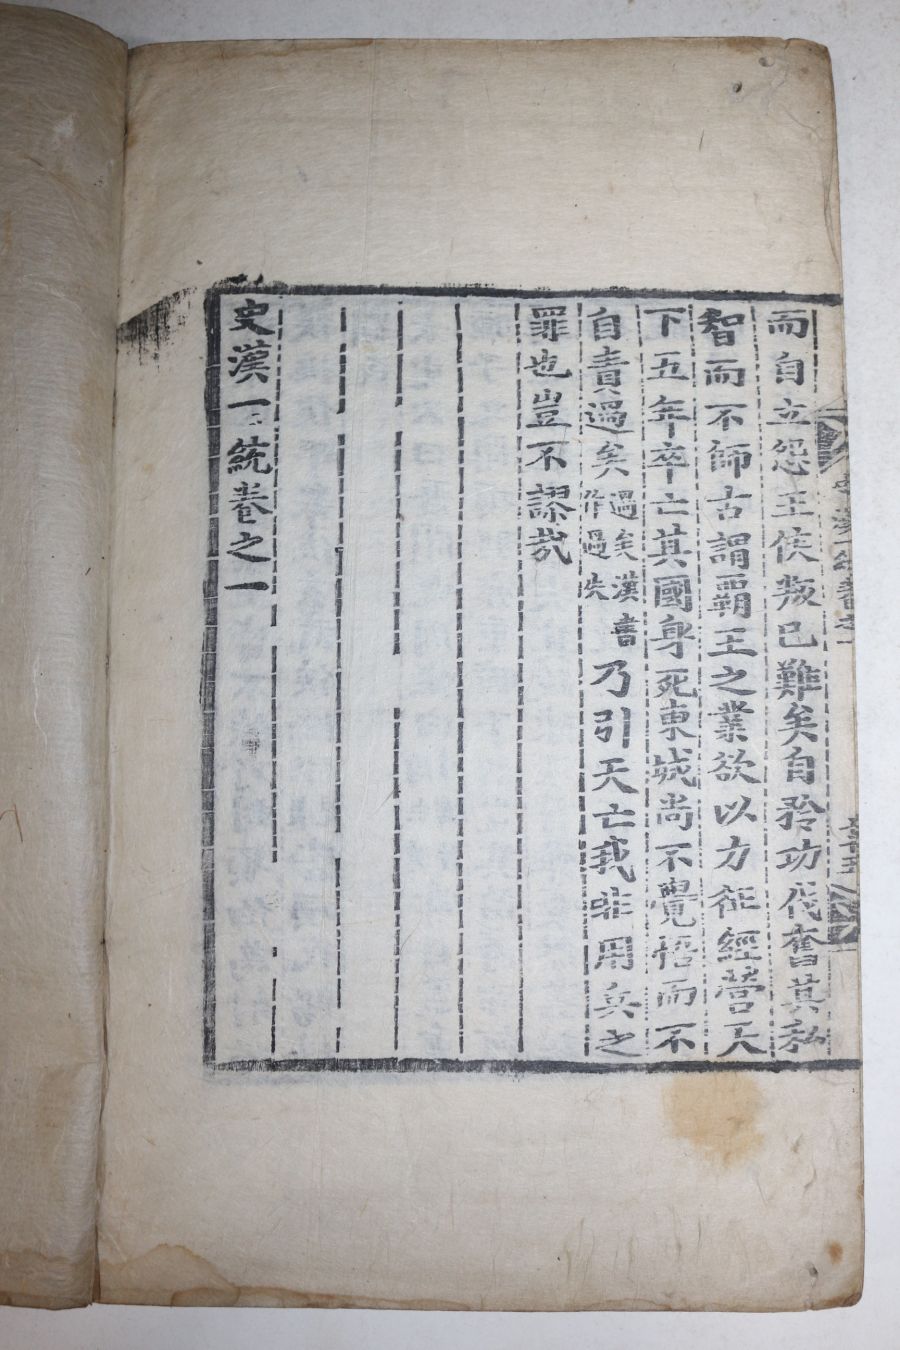 而自立怨王侯叛己難矣自矜功伐奮其私
智而不師古謂覇王之業欲以力征經營天
下五年卒亡其國身死東城尚不覺悟而不
自責過矣過矣漢書作過失乃引天亡我非用兵之
罪也豈不謬哉
史漢一統卷之一